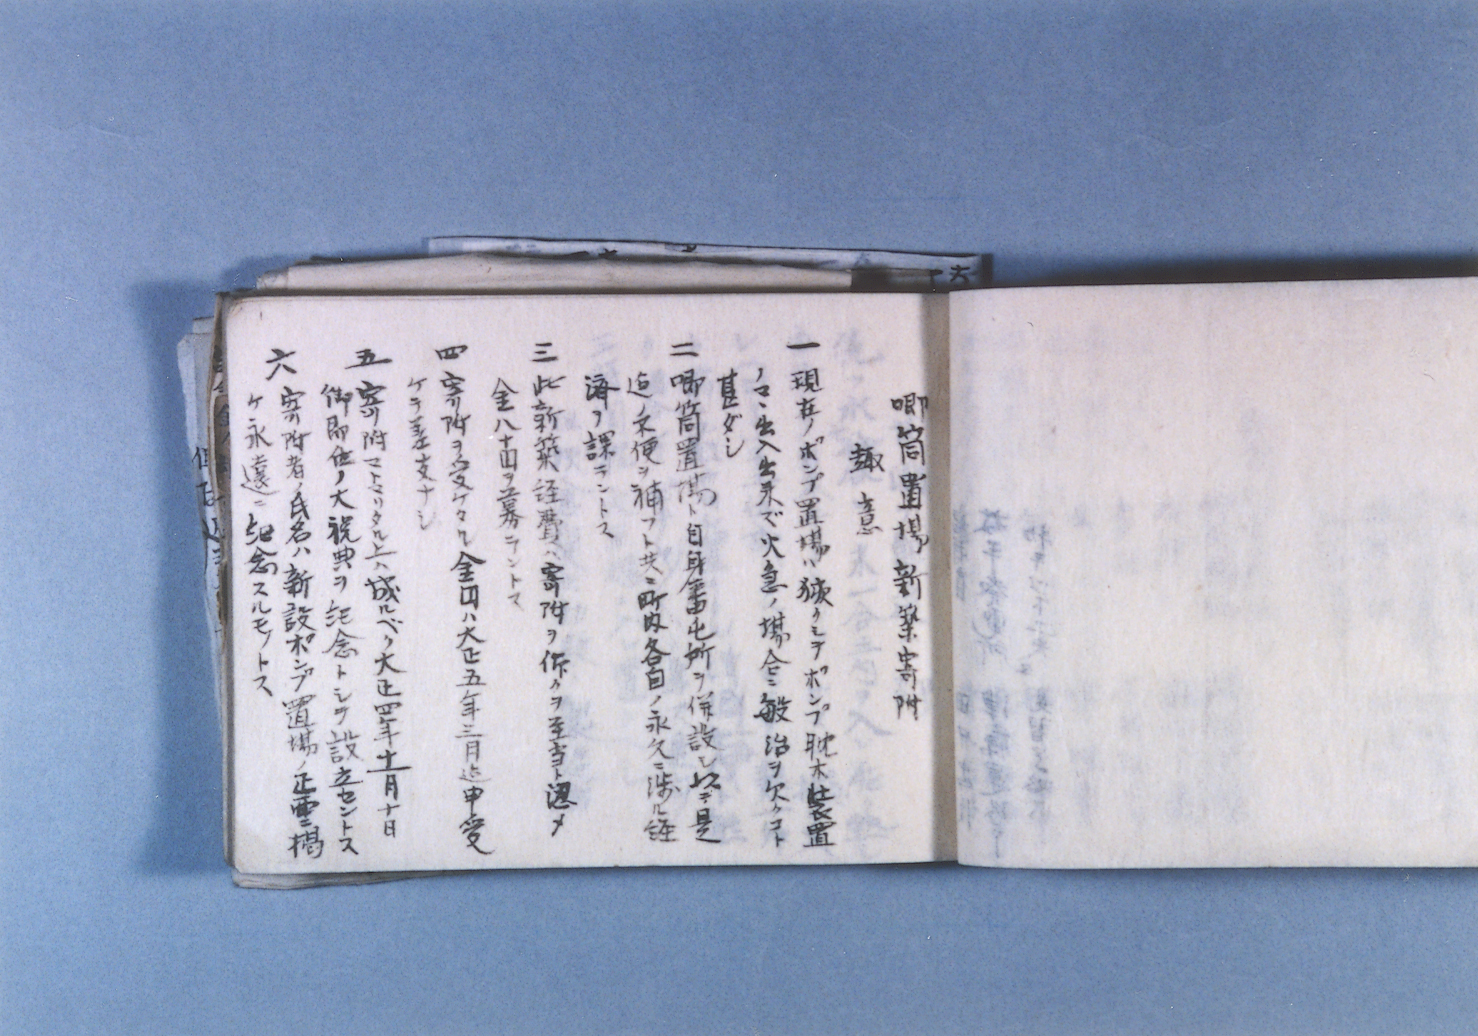 喞筒置場新築寄附
趣意
一 現在ノポンプ置場ハ狹クシテポンプ 装置
ノマヽ出入出来デ火急ノ場合ニ敏治ヲ欠クコト
甚ダシ
二 喞筒置場ト自身番屯所ヲ併設シ以テ是
迄ノ不便ヲ補フト共ニ町内各自ノ永久ニ渉ル経
済ヲ課ラントス
三 此新築経費ハ寄附ヲ仰クヲ至当ト認メ
金八十円ヲ募ラントス
四 寄附ヲ受ケタル金円ハ大正五年三月迄申受
ケテ差支ナシ
五 寄附マトマリタル上ハ成ルベク大正四年十一月十日
御即位ノ大祝典ヲ紀念トシテ設立セントス
六 寄附者ノ氏名ハ新設ポンプ置場ノ正面ニ掲
ケ永遠ニ紀念スルモノトス